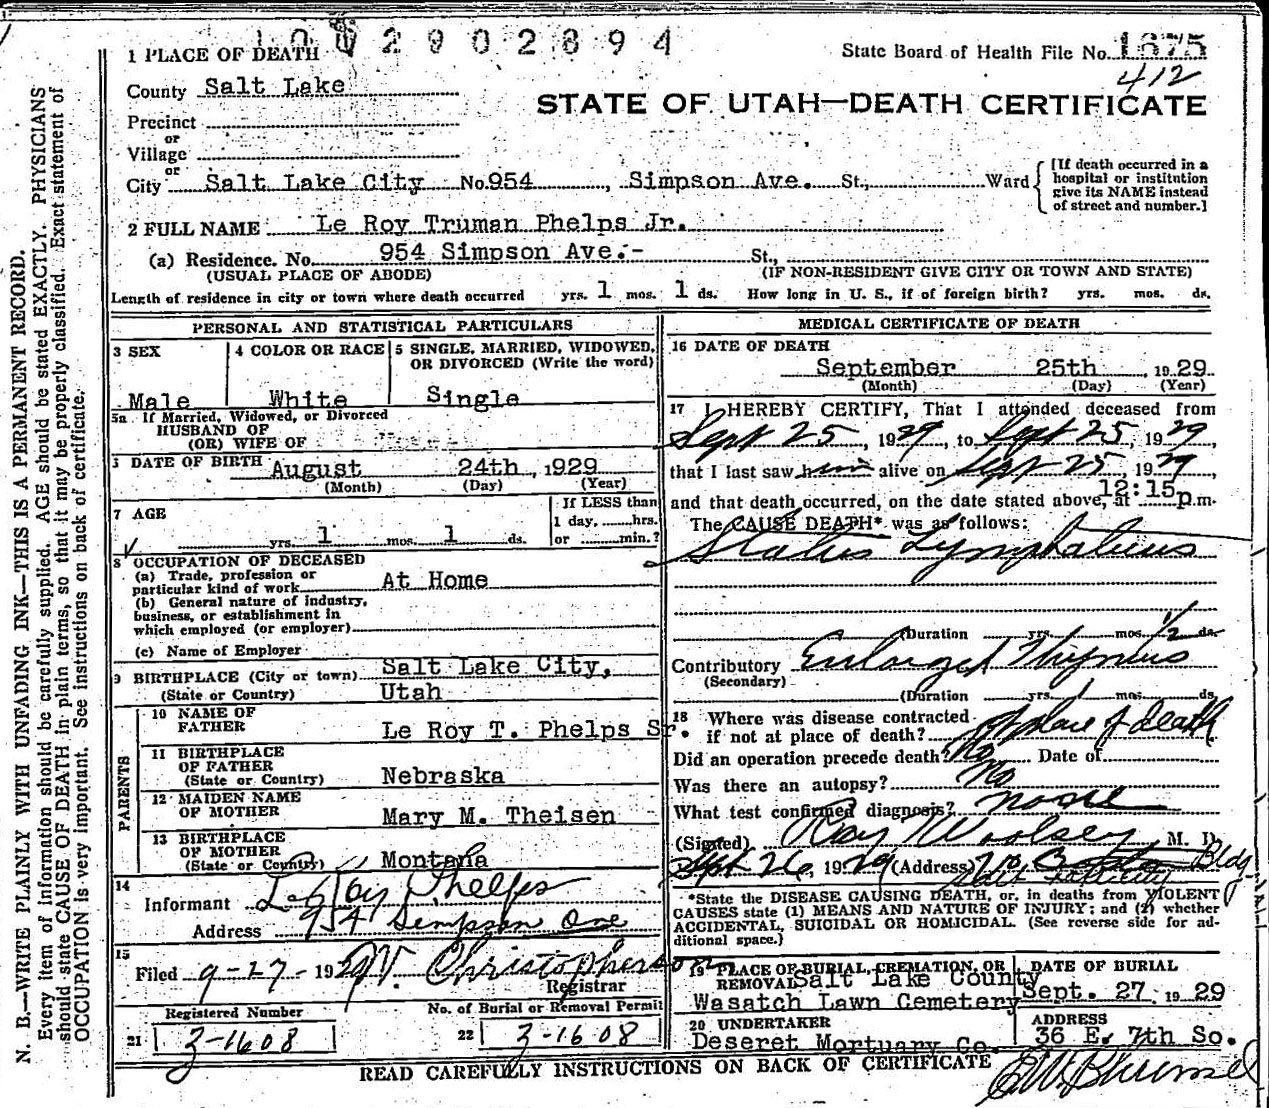 1 PLACE OF DEATH
1002902894
State Board of Health File No. 1675
412
County Salt Lake
STATE OF UTAH—DEATH CERTIFICATE
Precinct
or
Village
or
City Salt Lake City No. 954, Simpson Ave. St., Ward
[If death occurred in a
hospital or institution
give its NAME instead
of street and number.]
2 FULL NAME Le Roy Truman Phelps Jr.
(a) Residence. No. 954 Simpson Ave.:- St.,
(USUAL PLACE OF ABODE) (IF NON-RESIDENT GIVE CITY OR TOWN AND STATE)
Length of residence in city or town where death occurred yrs. 1 mos. 1 ds. How long in U. S., if of foreign birth? yrs. mos. ds.
PERSONAL AND STATISTICAL PARTICULARS
3 SEX
Male
4 COLOR OR RACE
White
5 SINGLE, MARRIED, WIDOWED,
OR DIVORCED (Write the word)
Single
5a If Married, Widowed, or Divorced
HUSBAND OF
(OR) WIFE OF
DATE OF BIRTH August 24th, 1929
(Month) (Day) (Year)
7 AGE
yrs. 1 mos. 1 ds.
If LESS than
1 day, ......hrs.
or ......min.?
8 OCCUPATION OF DECEASED
(a) Trade, profession or
particular kind of work At Home
(b) General nature of industry,
business, or establishment in
which employed (or employer)
(c) Name of Employer
9 BIRTHPLACE (City or town) Salt Lake City,
(State or Country) Utah
PARENTS
10 NAME OF
FATHER Le Roy T. Phelps Sr.
11 BIRTHPLACE
OF FATHER
(State or Country) Nebraska
12 MAIDEN NAME
OF MOTHER Mary M. Theisen
13 BIRTHPLACE
OF MOTHER
(State or Country) Montana
14
Informant LeRoy Phelps
Address 954 Simpson Ave
15
Filed 9-27-1929 J.V. Christopherson
Registrar
Registered Number
21 3-1608
No. of Burial or Removal Permit
22 3-1608
MEDICAL CERTIFICATE OF DEATH
16 DATE OF DEATH
September 25th, 1929
(Month) (Day) (Year)
17 I HEREBY CERTIFY, That I attended deceased from
Sept 25, 1929, to Sept 25, 1929,
that I last saw him alive on Sept 25, 1929
and that death occurred, on the date stated above, at 12:15 p.m.
The CAUSE DEATH* was as follows:
Status Lymphaticus
(Duration yrs. mos. 1/2 ds.
Contributory Enlarged Thymus
(Secondary)
(Duration yrs. 1 mos. ds.
18 Where was disease contracted
if not at place of death? At place of death
Did an operation precede death? No Date of
Was there an autopsy? No
What test confirmed diagnosis? none
(Signed) Ray Woolsey M. D.
Sept 26, 1929 (Address) Bldg
*State the DISEASE CAUSING DEATH, or, in deaths from VIOLENT
CAUSES state (1) MEANS AND NATURE OF INJURY; and (2) whether
ACCIDENTAL, SUICIDAL OR HOMICIDAL. (See reverse side for ad-
ditional space.)
19 PLACE OF BURIAL, CREMATION, OR
REMOVAL Salt Lake County
Wasatch Lawn Cemetery
DATE OF BURIAL
Sept. 27 1929
20 UNDERTAKER
Deseret Mortuary Co.
ADDRESS
36 E. 7th So.
READ CAREFULLY INSTRUCTIONS ON BACK OF CERTIFICATE
N. B.—WRITE PLAINLY WITH UNFADING INK—THIS IS A PERMANENT RECORD.
Every item of information should be carefully supplied. AGE should be stated EXACTLY. PHYSICIANS
should state CAUSE OF DEATH in plain terms, so that it may be properly classified. Exact statement of
OCCUPATION is very important. See instructions on back of certificate.